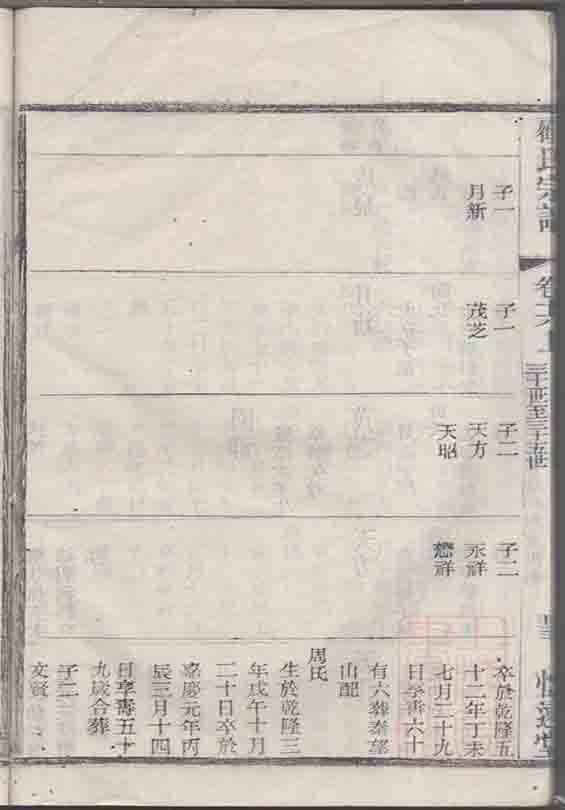 氏宗譜
卷
三十世至三十五世
子一
月新
子一
茂芝
子二
天方
天昭
子二
永祥
懋祥
卒於乾隆五
十二年丁未
七月二十九
日享壽六十
有六葬秦望
山配
周氏
生於乾隆三
年戊午十月
二十日卒於
嘉慶元年丙
辰三月十四
日享壽五十
九歲合葬
子二
文賢